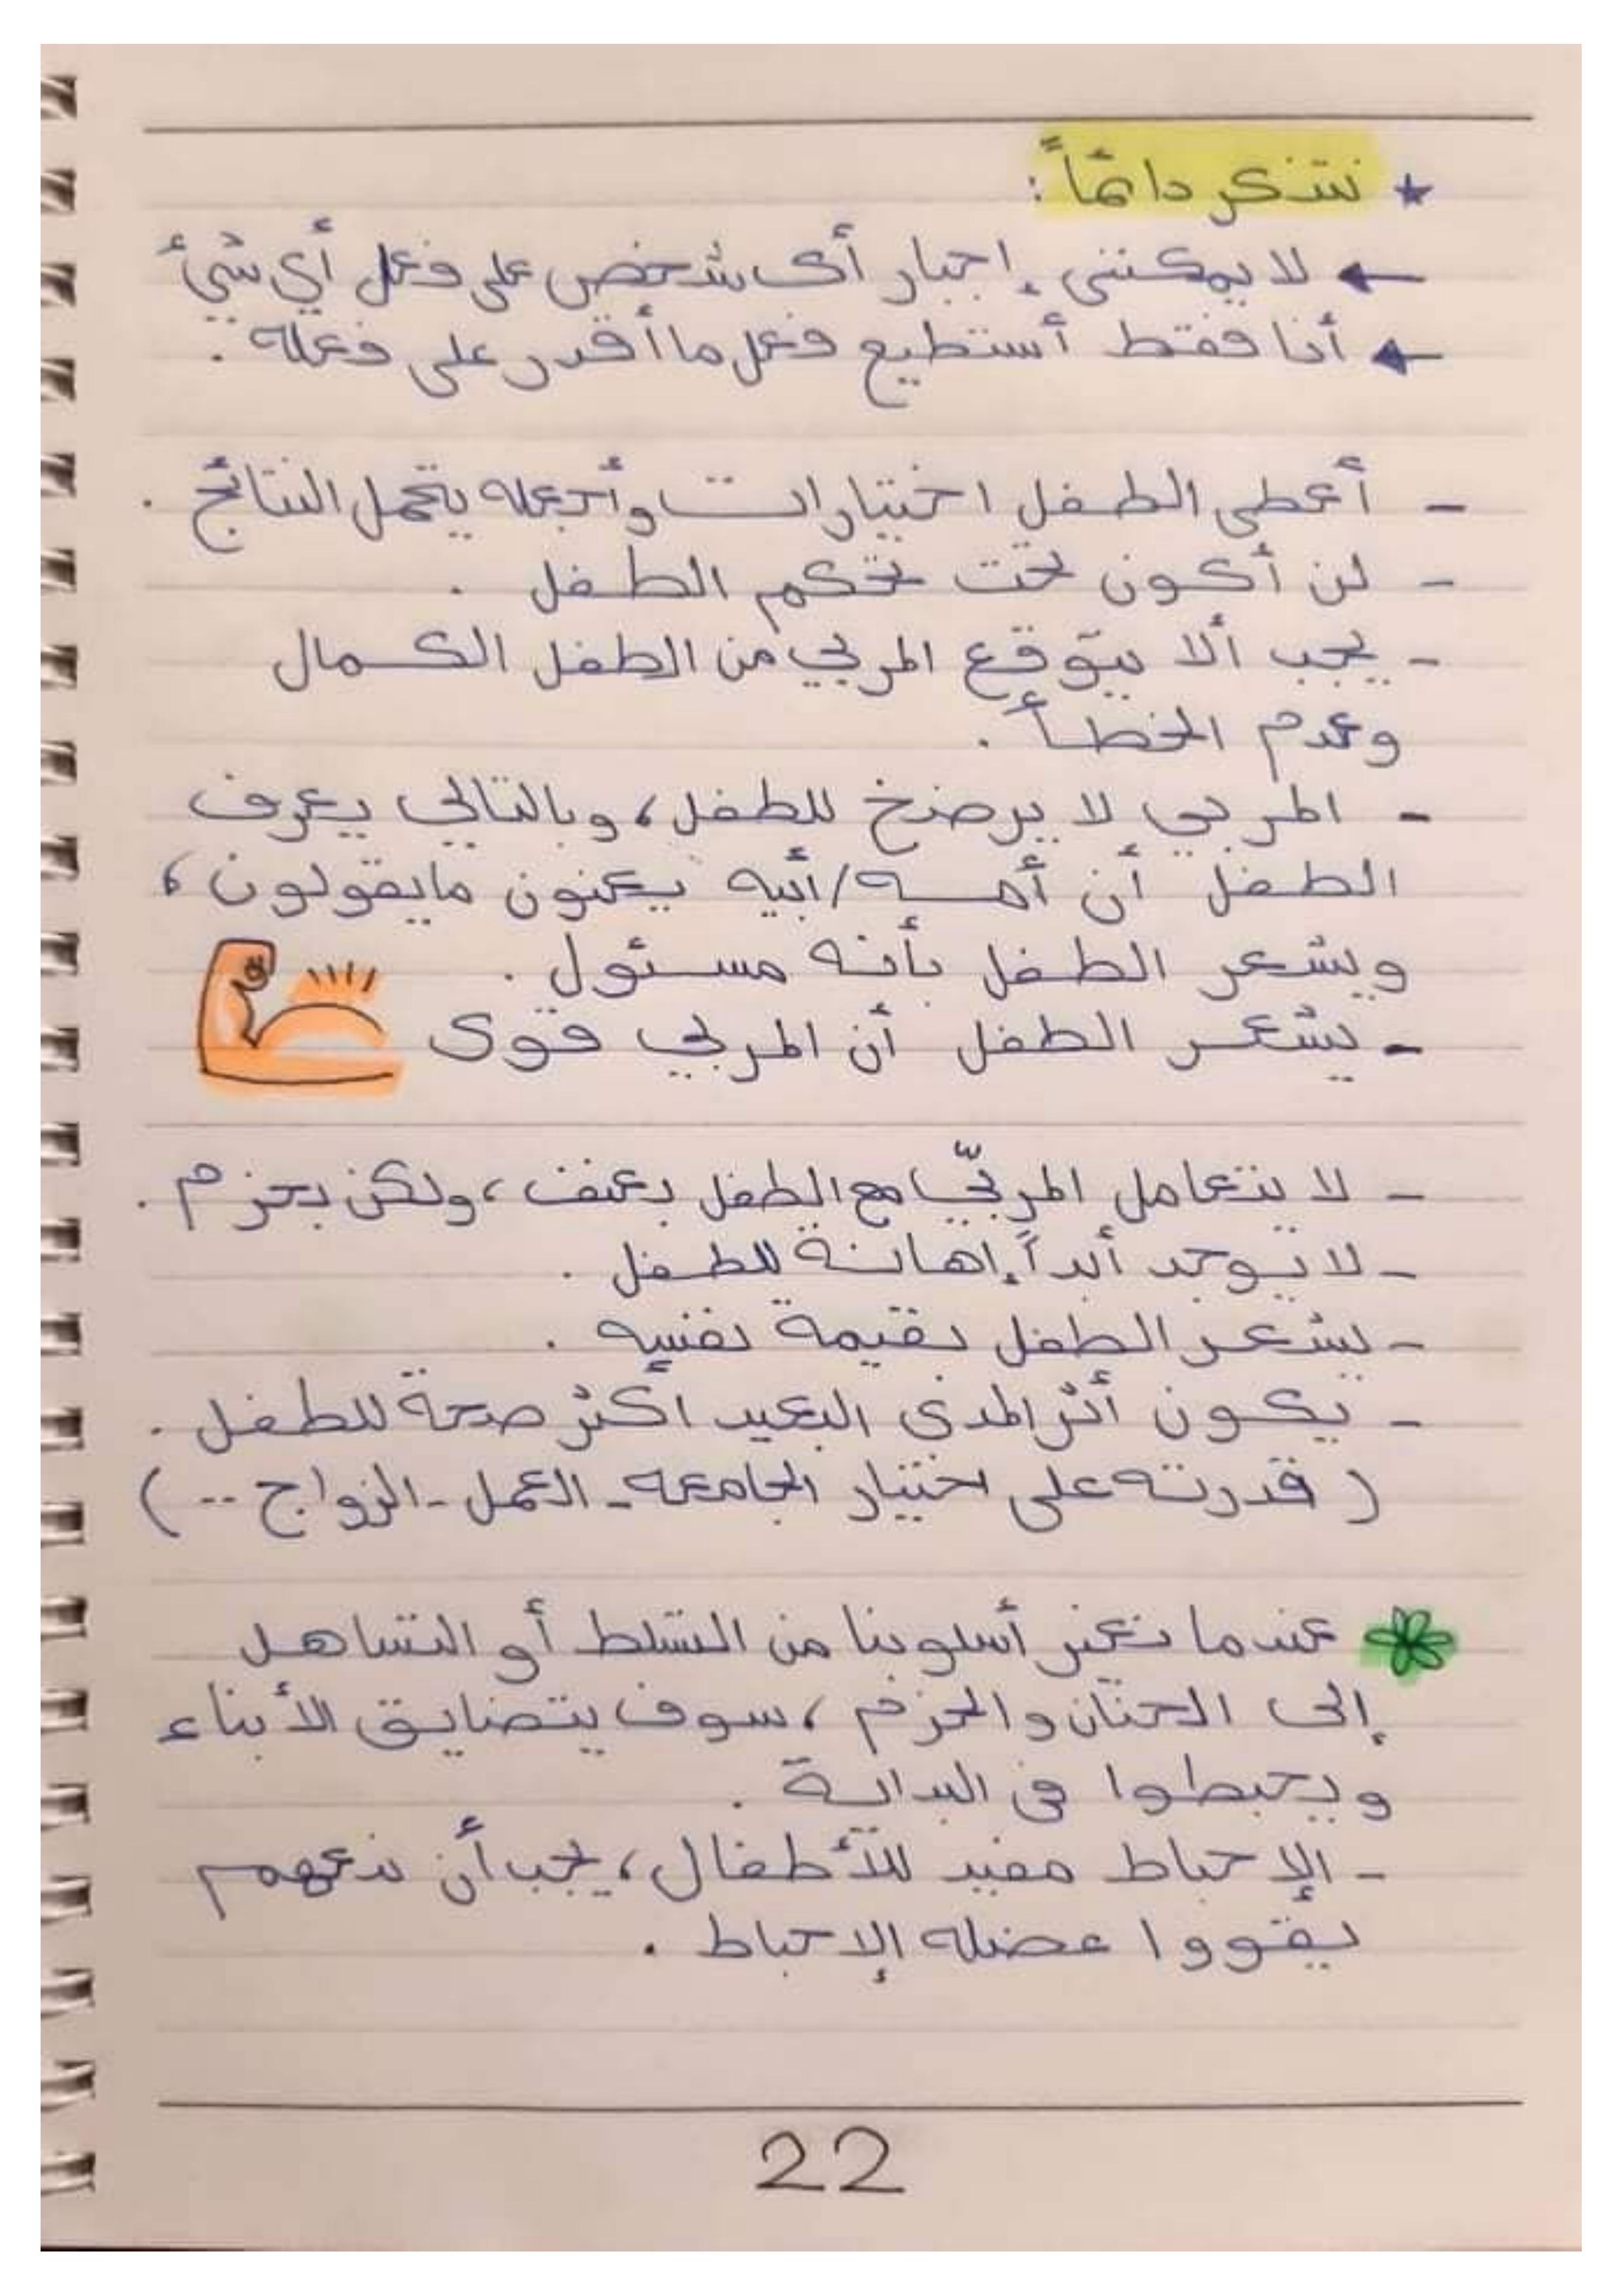 ★ نتذكر دائماً :
← لا يمكننى إجبار أى شخص على فعل أي شئ
← أنا فقط أستطيع فعل ما أقدر على فعله .
- أعطى الطفل اختيارات وأجعله يتحمل النتائج .
- لن أكون تحت تحكم الطفل .
- يجب ألا يتوقع المربي من الطفل الكمال
وعدم الخطأ .
- المربي لا يرضخ للطفل، وبالتالي يعرف
الطفل أن أمه/أبيه يعنون ما يقولون،
ويشعر الطفل بأنه مسئول .
- يشعر الطفل أن المربي قوى
- لا يتعامل المربّي مع الطفل بعنف، ولكن بحزم .
- لا يوجد أبداً إهانة للطفل .
- يشعر الطفل بقيمة نفسه .
- يكون أثر المدى البعيد أكثر صحة للطفل .
( قدرته على اختيار الجامعه - العمل - الزواج -- )
عندما نغير أسلوبنا من التسلط أو التساهل
إلى الحنان والحزم، سوف يتضايق الأبناء
ويحبطوا فى البداية .
- الإحباط مفيد للأطفال، يجب أن ندعهم
يقووا عضله الإحباط .
22